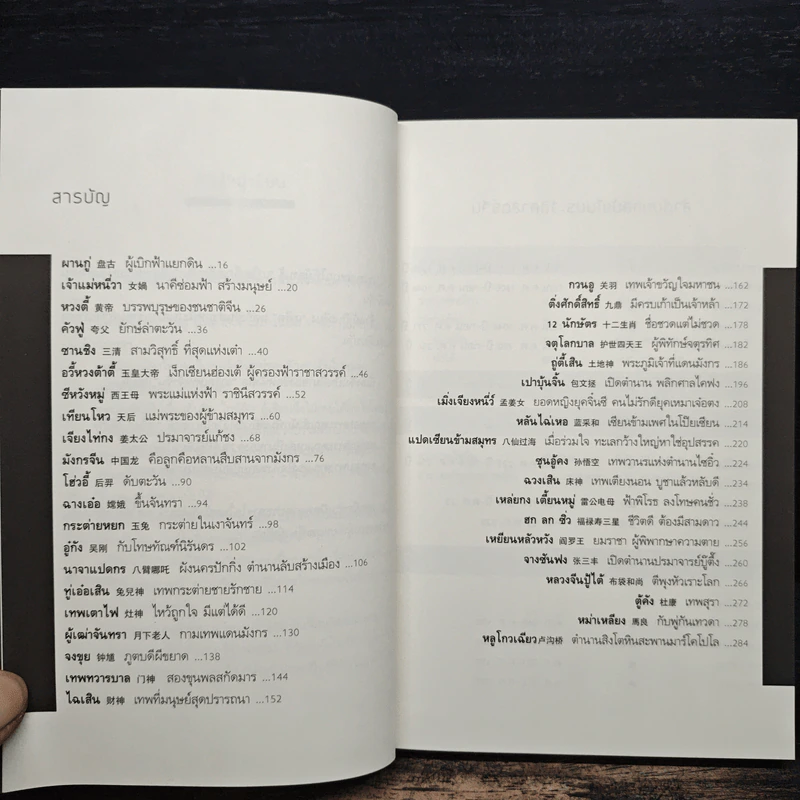 สารบัญ
ผานกู่ 盘古 ผู้เบิกฟ้าแยกดิน ...16
เจ้าแม่หนี่วา 女娲 นาคีซ่อมฟ้า สร้างมนุษย์ ...20
หวงตี้ 黄帝 บรรพบุรุษของชนชาติจีน ...26
คัวฟู่ 夸父 ยักษ์ล่าตะวัน ...36
ซานชิง 三清 สามวิสุทธิ์ ที่สุดแห่งเต๋า ...40
อวี้หวงต้าตี้ 玉皇大帝 เง็กเซียนฮ่องเต้ ผู้ครองฟ้าราชาสวรรค์ ...46
ซีหวังหมู่ 西王母 พระแม่แห่งฟ้า ราชินีสวรรค์ ...52
เทียนโหว 天后 แม่พระของผู้ข้ามสมุทร ...60
เจียงไท่กง 姜太公 ปรมาจารย์แก้ชง ...68
มังกรจีน 中国龙 คือลูกคือหลานสืบสานจากมังกร ...76
โฮ่วอี้ 后羿 ดับตะวัน ...90
ฉางเอ๋อ 嫦娥 ขึ้นจันทรา ...94
กระต่ายหยก 玉兔 กระต่ายในเงาจันทร์ ...98
อู๋กัง 吴刚 กับโทษทัณฑ์นิรันดร ...102
นาจาแปดกร 八臂哪吒 ผังนครปักกิ่ง ตำนานลับสร้างเมือง ...106
ทู่เอ๋อเสิน 兔兒神 เทพกระต่ายชายรักชาย ...114
เทพเตาไฟ 灶神 ไหว้ถูกใจ มีแต่ได้ดี ...120
ผู้เฒ่าจันทรา 月下老人 กามเทพแดนมังกร ...130
จงขุย 钟馗 ภูตบดีผีขยาด ...138
เทพทวารบาล 门神 สองขุนพลสกัดมาร ...144
ไฉเสิน 财神 เทพที่มนุษย์สุดปรารถนา ...152
กวนอู 关羽 เทพเจ้าขวัญใจมหาชน ...162
ติ่งศักดิ์สิทธิ์ 九鼎 มีครบเก้าเป็นเจ้าหล้า ...172
12 นักษัตร 十二生肖 ชื่อชวดแต่ไม่ชวด ...178
จตุโลกบาล 护世四天王 ผู้พิทักษ์จตุรทิศ ...182
ถู่ตี้เสิน 土地神 พระภูมิเจ้าที่แดนมังกร ...186
เปาบุ้นจิ้น 包文拯 เปิดตำนาน พลิกศาลไคฟง ...196
เมิ่งเจียงหนี่ว์ 孟姜女 ยอดหญิงยุคจิ๋นซี คนไม่รักดียุคเหมาเจ๋อตง ...208
หลันไฉ่เหอ 蓝采和 เซียนข้ามเพศในโป๊ยเซียน ...214
แปดเซียนข้ามสมุทร 八仙过海 เมื่อร่วมใจ ทะเลกว้างใหญ่หาใช่อุปสรรค ...220
ซุนอู้คง 孙悟空 เทพวานรแห่งตำนานไซอิ๋ว ...224
ฉวงเสิน 床神 เทพเตียงนอน บูชาแล้วหลับดี ...232
เหล่ยกง เตี้ยนหมู่ 雷公电母 ฟ้าพิโรธ ลงโทษคนชั่ว ...238
ฮก ลก ซิ่ว 福禄寿三星 ชีวิตดี ต้องมีสามดาว ...244
เหยียนหลัวหวัง 阎罗王 ยมราชา ผู้พิพากษาความตาย ...256
จางซันฟง 张三丰 เปิดตำนานปรมาจารย์บู๊ตึ๊ง ...260
หลวงจีนปู้ไต้ 布袋和尚 ตีพุงหัวเราะโลก ...266
ตู้คัง 杜康 เทพสุรา ...272
หม่าเหลียง 馬良 กับพู่กันเทวดา ...278
หลูโกวเฉียว 卢沟桥 ตำนานสิงโตหินสะพานมาร์โคโปโล ...284